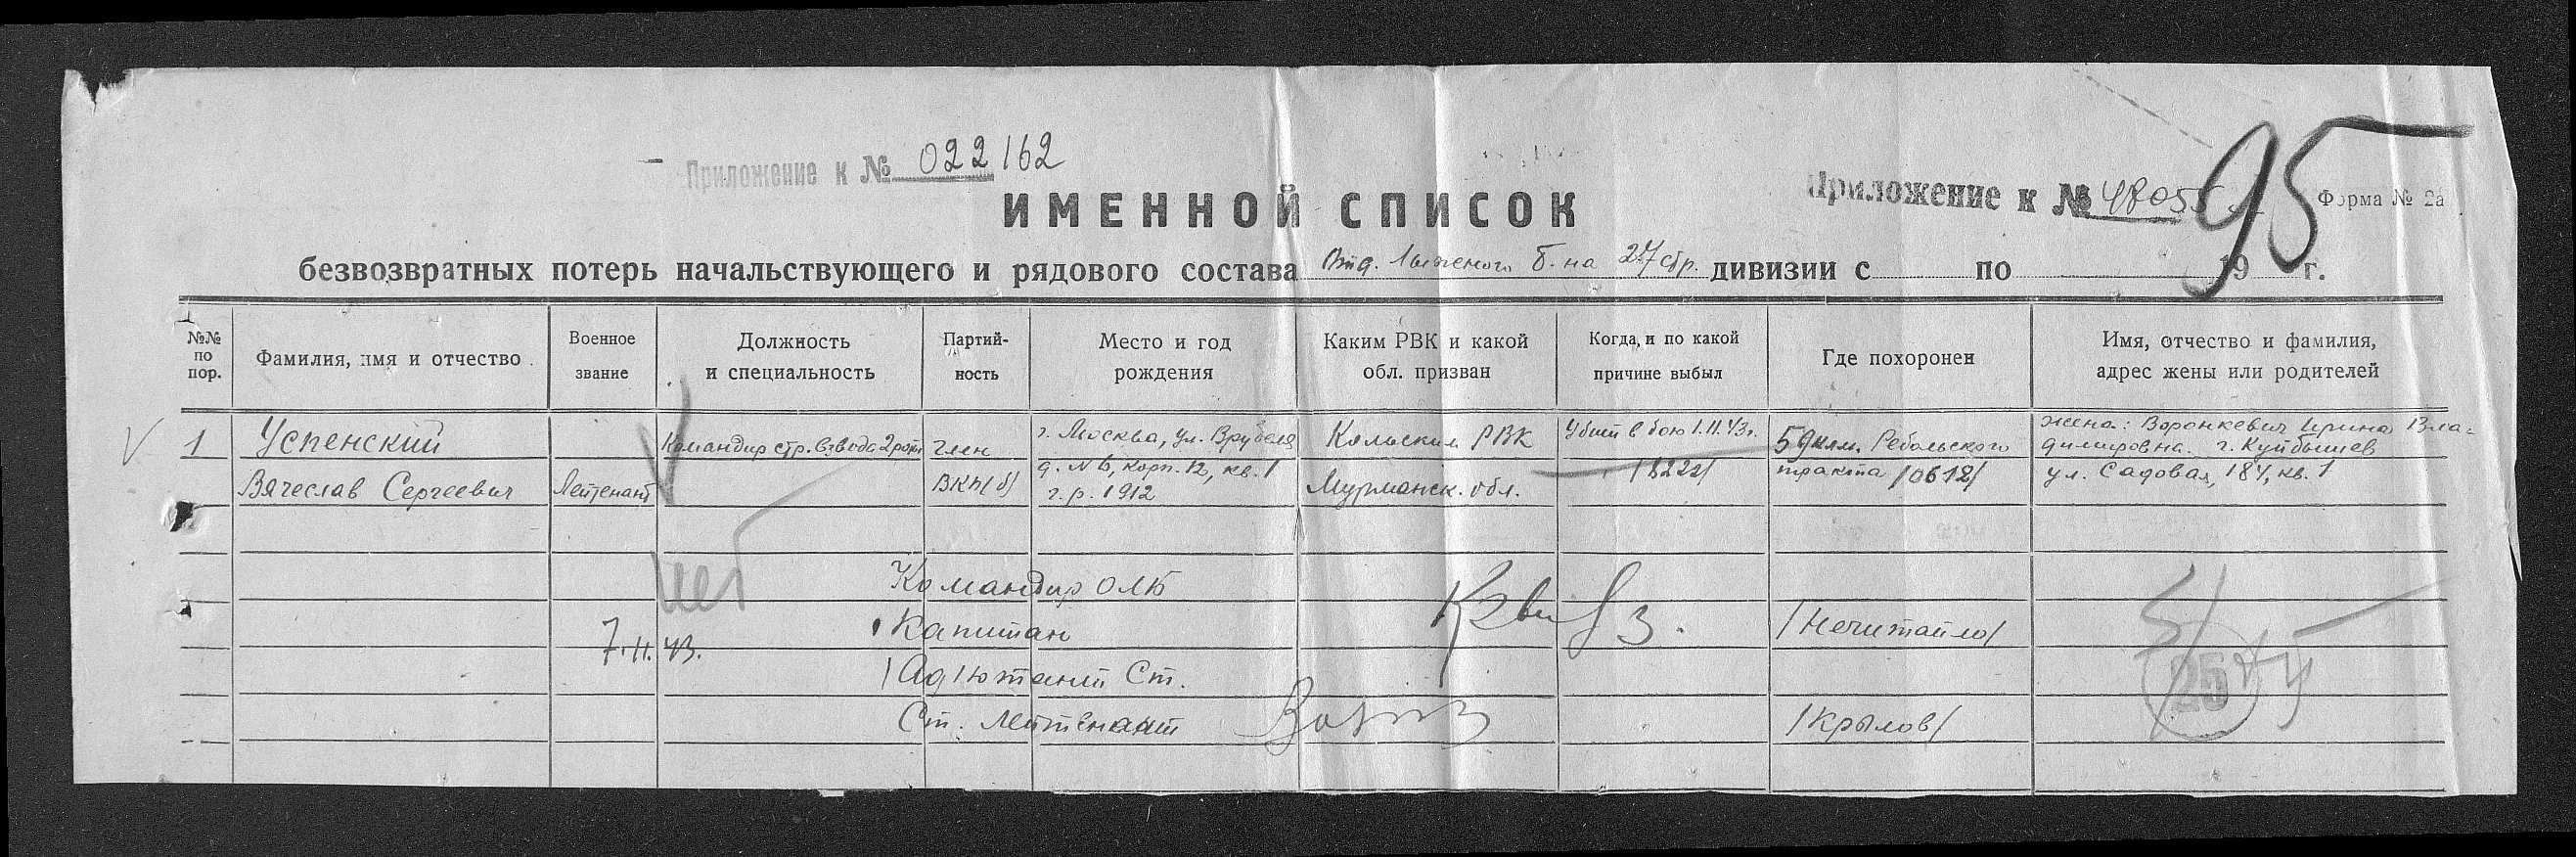 Приложение к № 022162
Приложение к № 48055
95
Форма № 2а
ИМЕННОЙ СПИСОК
безвозвратных потерь начальствующего и рядового состава Отд. лыжного б-на 27 стр. дивизии с по 19 г.
№№ по пор.
Фамилия, имя и отчество
Военное звание
Должность и специальность
Партийность
Место и год рождения
Каким РВК и какой обл. призван
Когда и по какой причине выбыл
Где похоронен
Имя, отчество и фамилия, адрес жены или родителей
V 1 Успенский Командир стр. взвода 2 роты член г. Москва, ул. Врубеля Кольским РВК Убит в бою 1.11.43г. 59 клм. Ребольского жена: Воронкевич Ирина Вла-
димировна. г. Куйбышев
Вячеслав Сергеевич Лейтенант ВКП(б) д. № 6, корп. 12, кв. 1 Мурманск. обл. /8222/ тракта /0612/ ул. Садовая, 184, кв. 1
г.р. 1912
нет
Командир ОЛБ
Капитан /Нечитайло/
7.11.43.
/Адютант Ст.
Ст. Лейтенант /Крылов/
25